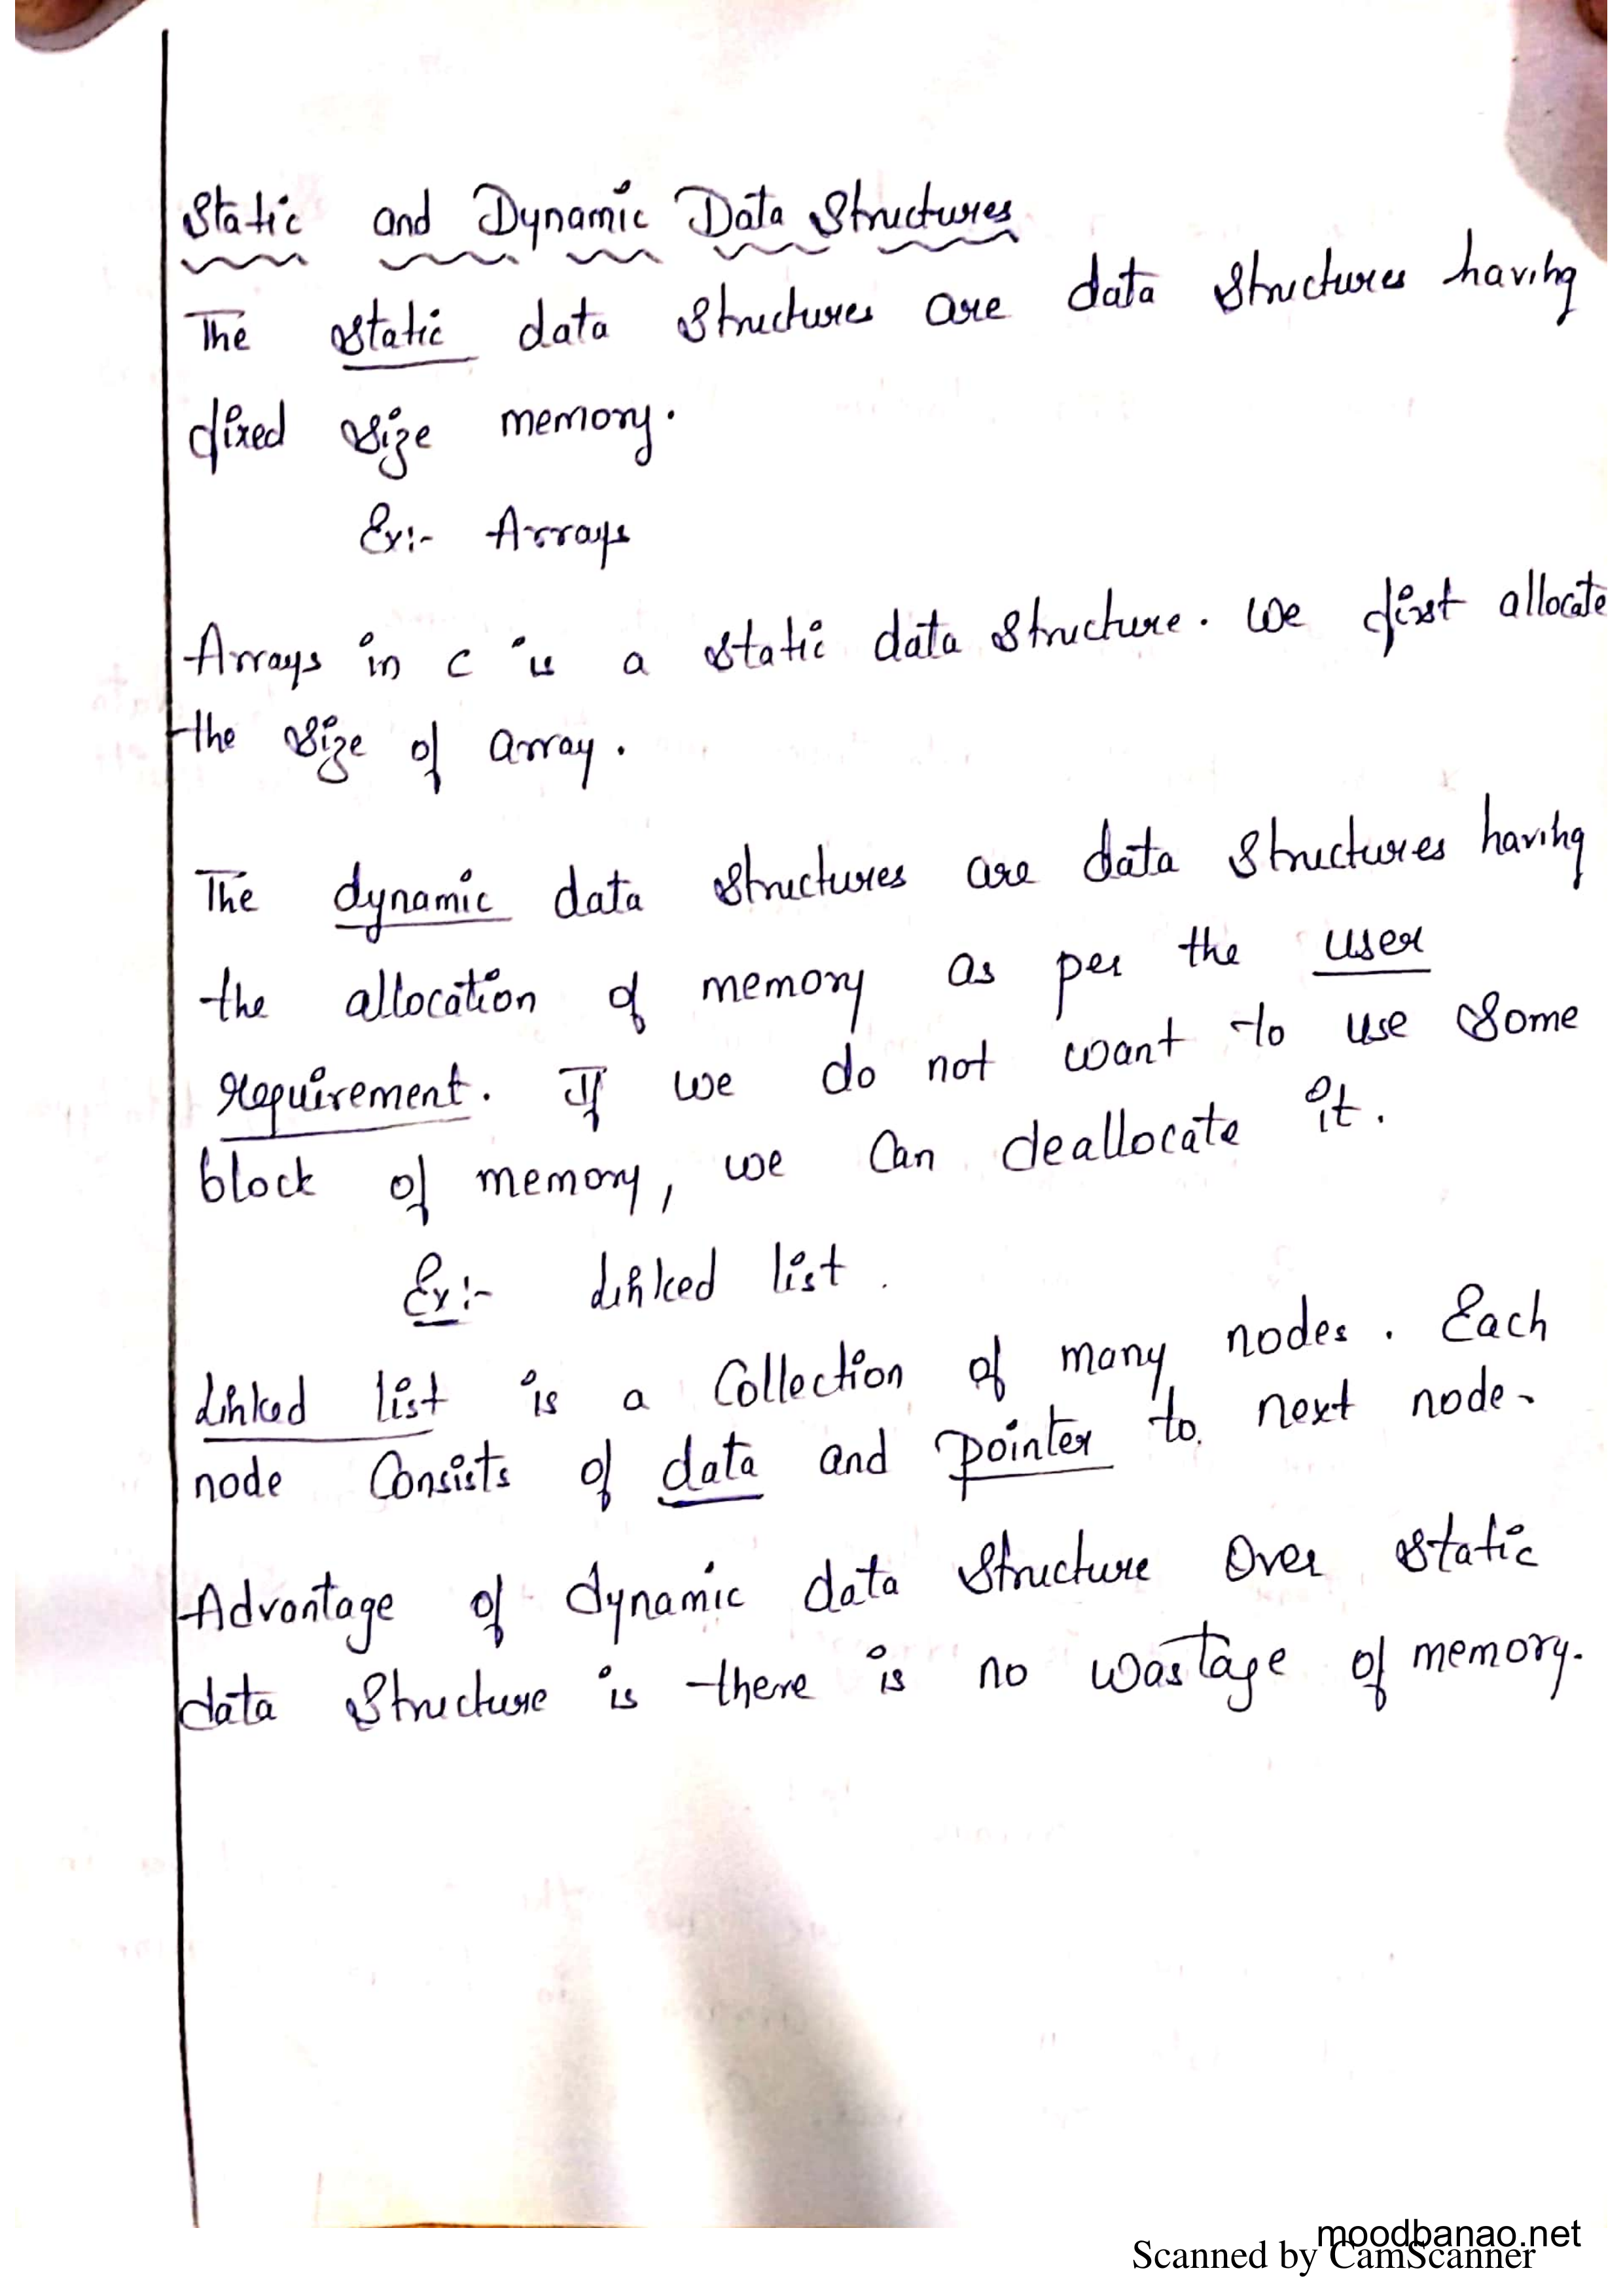 Static and Dynamic Data Structures
The static data structures are data structures having
fixed size memory.
Ex:- Arrays
Arrays in c is a static data structure. We first allocate
the size of array.
The dynamic data structures are data structures having
the allocation of memory as per the user
requirement. If we do not want to use some
block of memory, we can deallocate it.
Ex:- Linked list.
Linked list is a Collection of many nodes. Each
node Consists of data and pointer to next node.
Advantage of dynamic data structure Over static
data structure is there is no wastage of memory.
moodbanao.net
Scanned by CamScanner